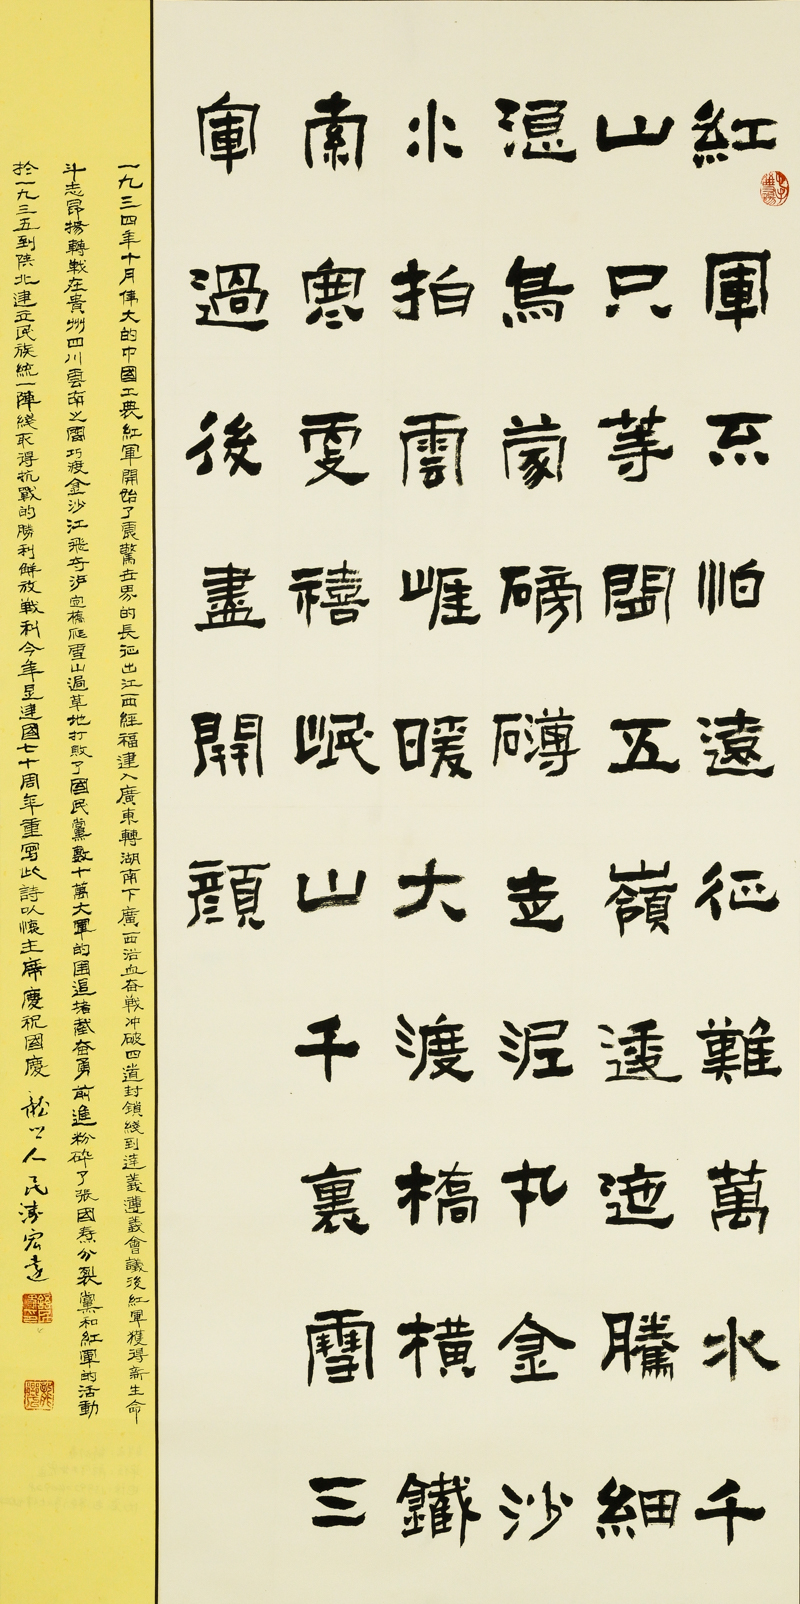 紅軍不怕遠征難萬水千
山只等閒五嶺逶迤騰細
浪烏蒙磅礴走泥丸金沙
水拍雲崖暖大渡橋橫鐵
索寒更禧岷山千裏雪三
軍過後盡開顔
一九三四年十月偉大的中國工農紅軍開始了震驚世界的長征出江西經福建入廣東轉湖南下廣西浴血奋戰冲破四道封鎖綫到達義遵義會議後紅軍獲得新生命
斗志昂揚轉戰在貴州四川雲南之間巧渡金沙江飛奇泸定橋爬雪山過草地打敗了國民黨數十萬大軍的围追堵截奋勇前進粉碎了張國燾分裂黨和紅軍的活動
於一九三五到陕北建立民族統一陣綫取得抗戰的勝利解放戰利今年是建國七十周年重寫此詩以懷主席慶祝國慶